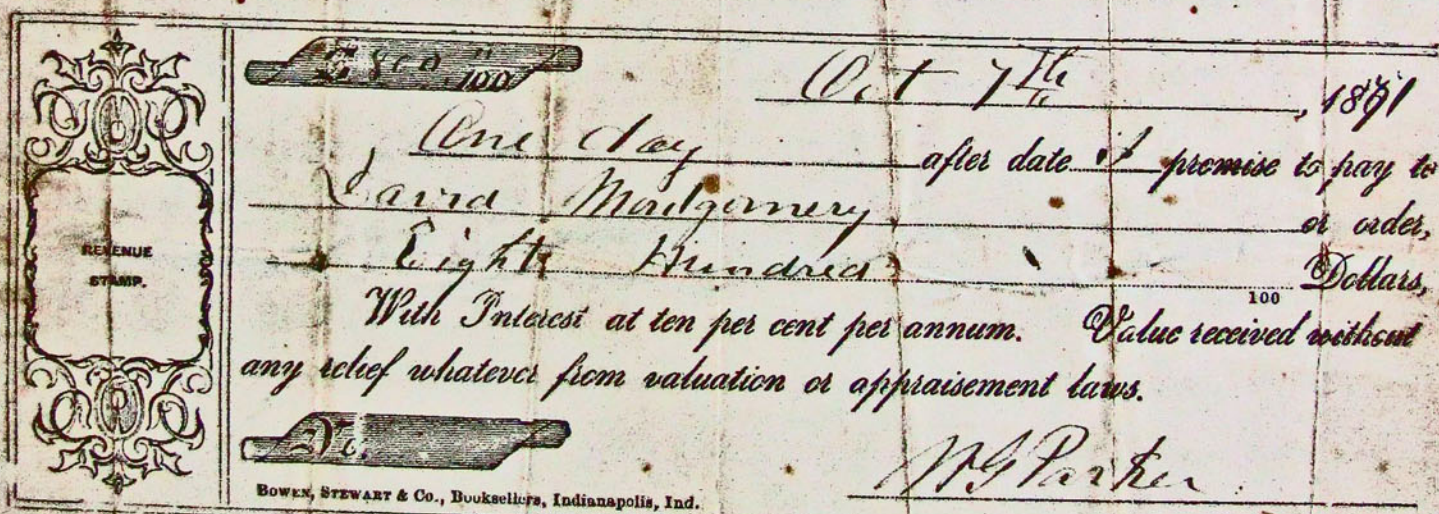 $ 800 "/100
Oct 7th, 1871
One day after date I promise to pay to
David Montgomery or order,
Eight Hundred 100 Dollars,
With Interest at ten per cent per annum. Value received without
any relief whatever from valuation or appraisement laws.
No.
W G Parker
REVENUE
STAMP.
BOWEN, STEWART & Co., Booksellers, Indianapolis, Ind.